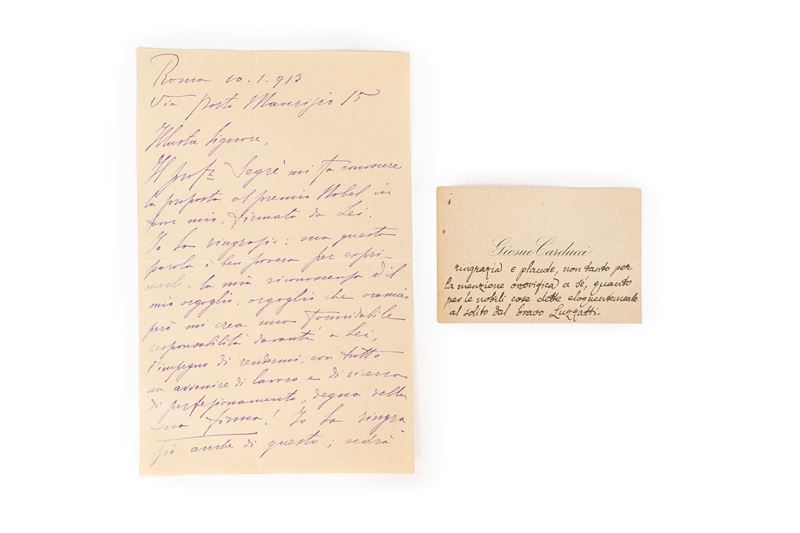 Roma 10.1.913
Via Porto Maurizio 15
Illustre Signore,
Il prof.r Segrè mi fa conoscere
la proposta al premio Nobel in
favor mio, firmata da Lei.
Io La ringrazio: ma questa
parola è ben povera per espri-
merle la mia riconoscenza ed il
mio orgoglio: orgoglio che oramai
però mi crea una formidabile
responsabilità davanti a Lei,
l'impegno di rendermi, con tutto
un avvenire di lavoro e di ricerca
di perfezionamento, degna della
Sua firma! Io La ringra
zio anche di questo; vedrà
Giosue Carducci
ringrazia e plaude, non tanto per
la menzione onorifica a sé, quanto
per le nobili cose dette eloquentemente
al solito dal bravo Luzzatti.